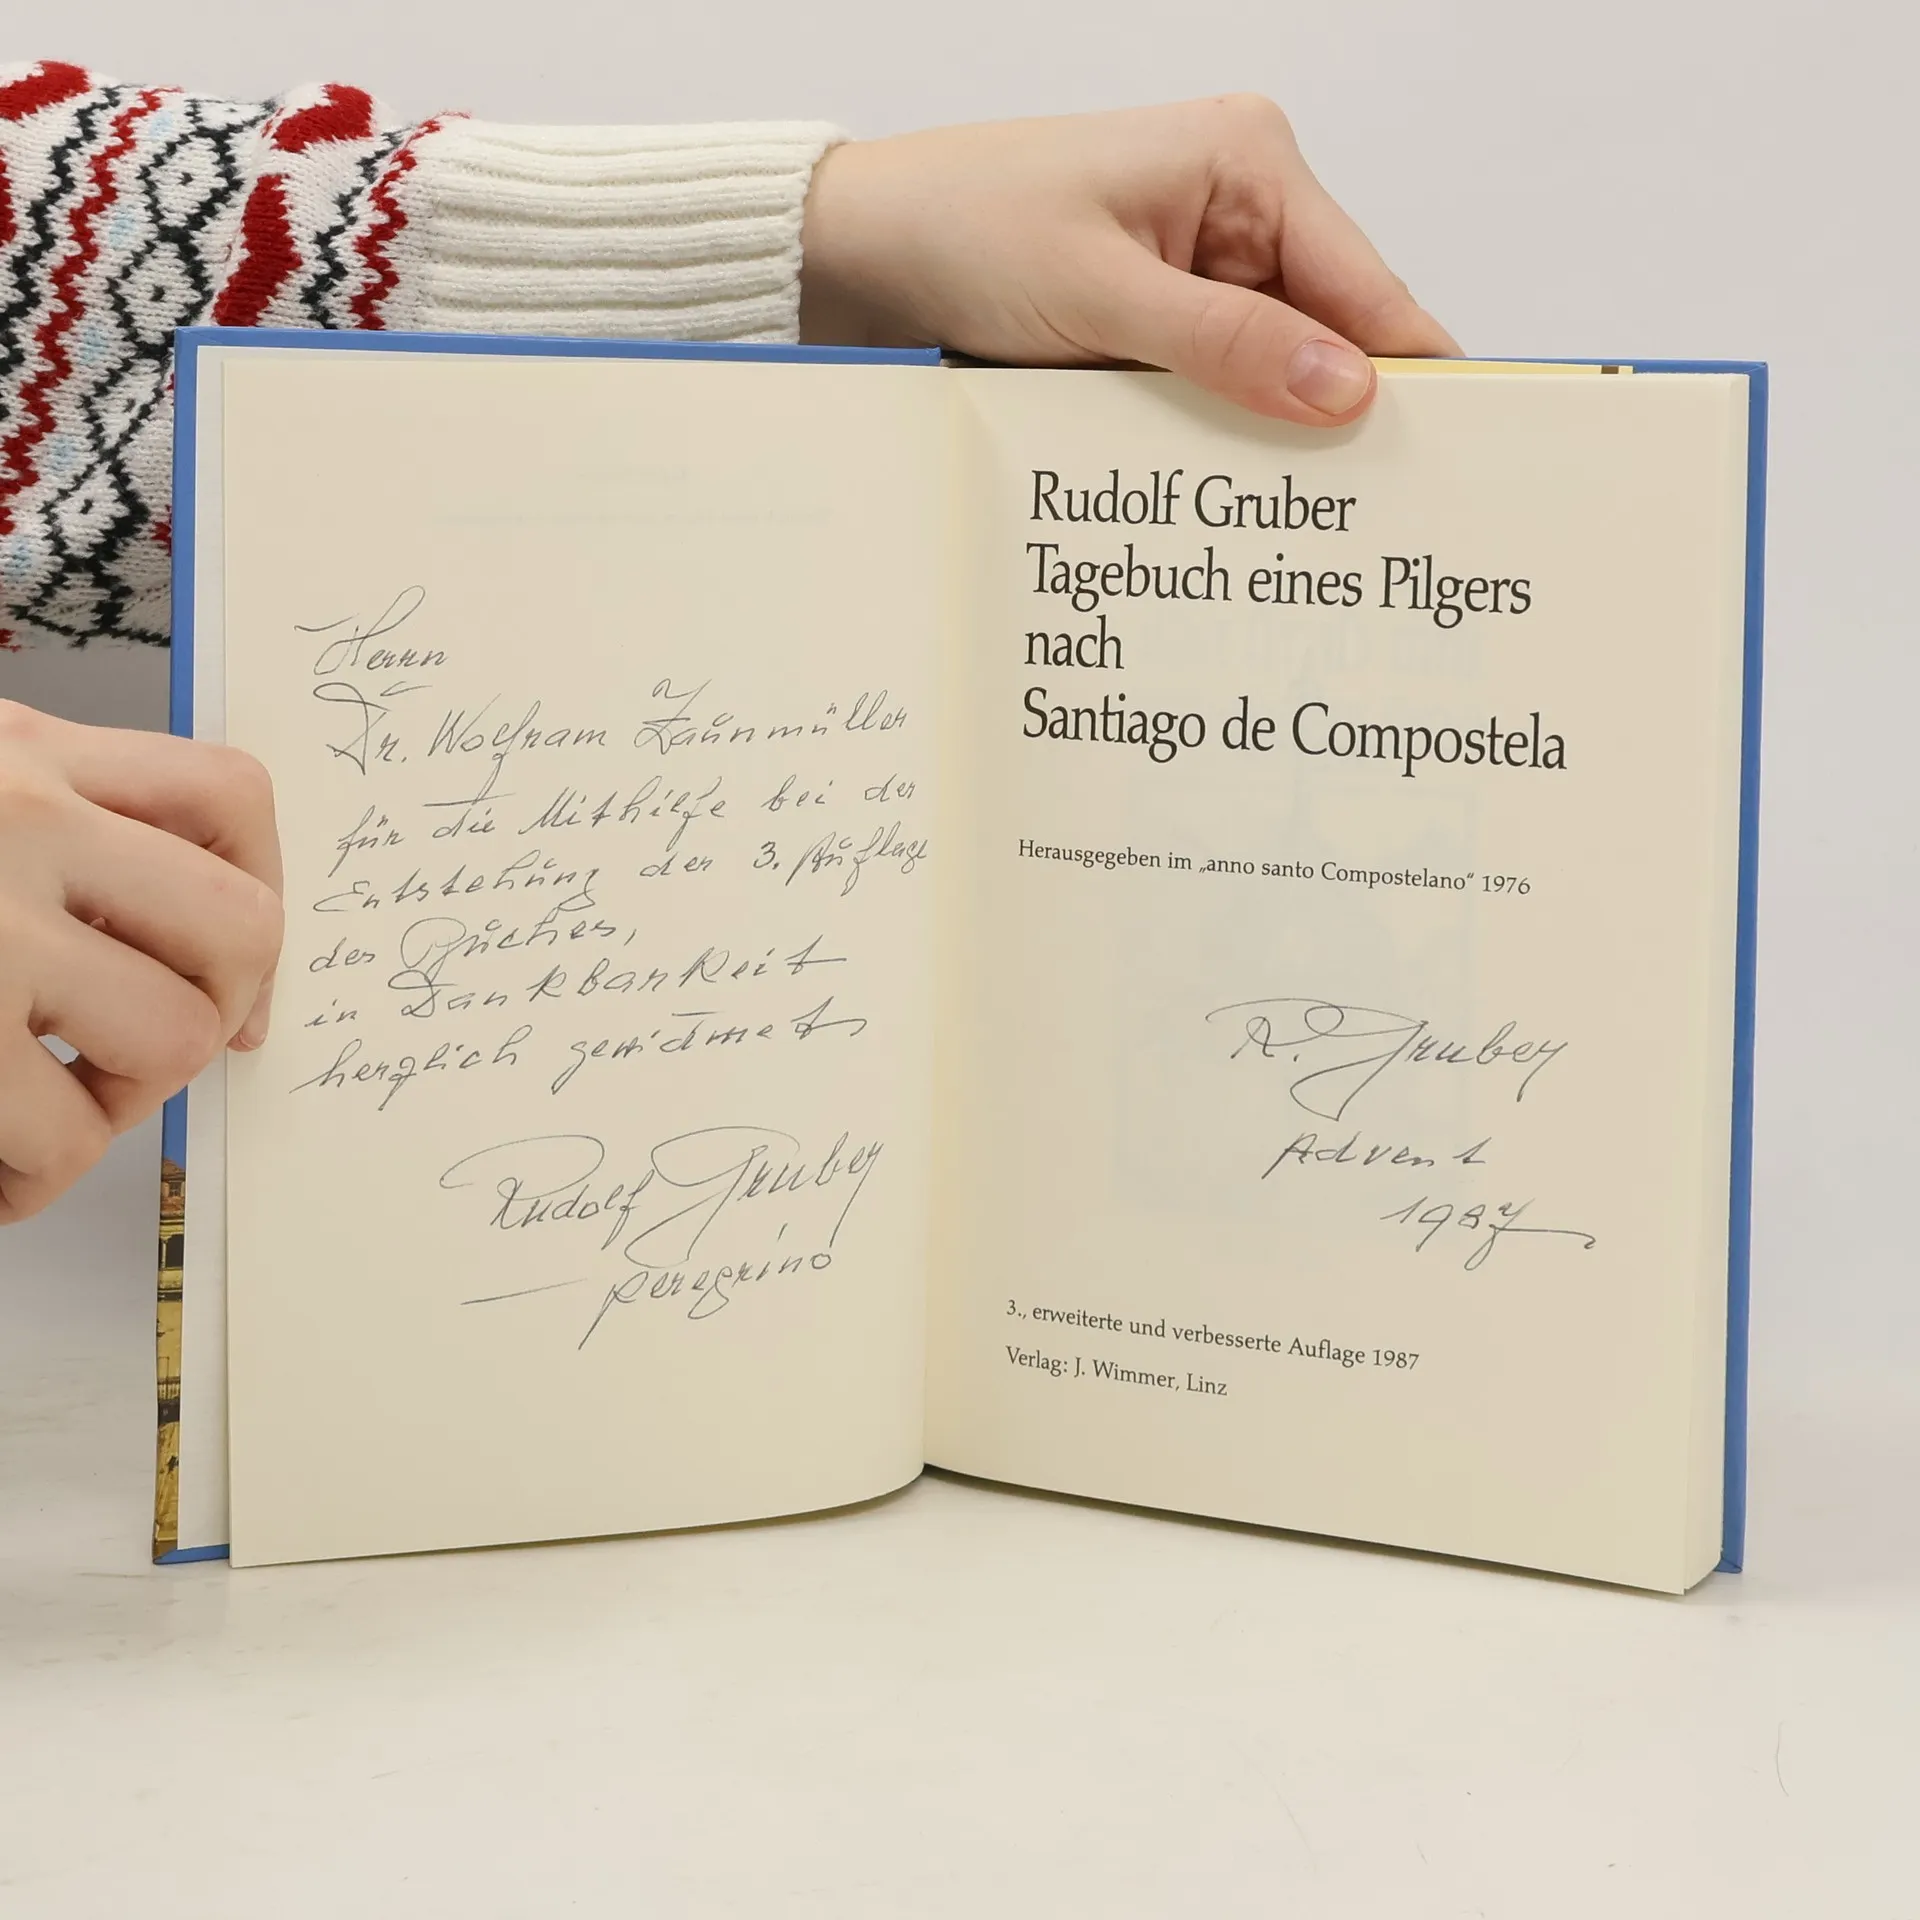 Herrn
Dr. Wolfram Zaunmüller
für die Mithilfe bei der
Entstehung der 3. Auflage
des Buches,
in Dankbarkeit
herzlich gewidmet
Rudolf Gruber
peregrino
Rudolf Gruber
Tagebuch eines Pilgers
nach
Santiago de Compostela
Herausgegeben im „anno santo Compostelano“ 1976
R. Gruber
Advent
1987
3., erweiterte und verbesserte Auflage 1987
Verlag: J. Wimmer, Linz